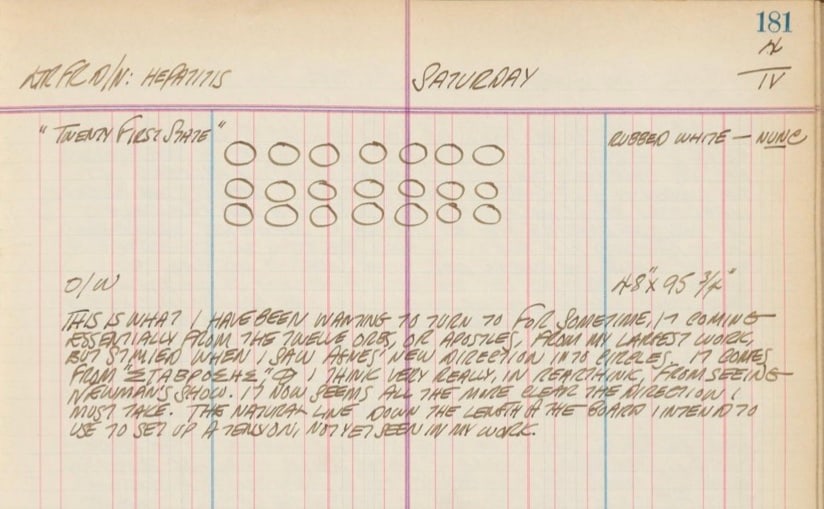 181
LTR FR D/N: HEPATITIS SATURDAY 4/IV
"TWENTY FIRST STATE" RUBBED WHITE — NUNC
O/W 48" x 95 3/4"
THIS IS WHAT I HAVE BEEN WANTING TO TURN TO FOR SOMETIME, IT COMING
ESSENTIALLY FROM THE TWELVE ORBS, OR APOSTLES, FROM MY LARGEST WORK,
BUT STYMIED WHEN I SAW AGNES' NEW DIRECTION INTO CIRCLES. IT COMES
FROM I THINK VERY REALLY, IN REARTHINK, FROM SEEING
NEWMAN'S SHOW. IT NOW SEEMS ALL THE MORE CLEAR THE DIRECTION I
MUST TAKE. THE NATURAL LINE DOWN THE LENGTH OF THE BOARD I INTEND TO
USE TO SET UP A TENSION, NOT YET SEEN IN MY WORK.